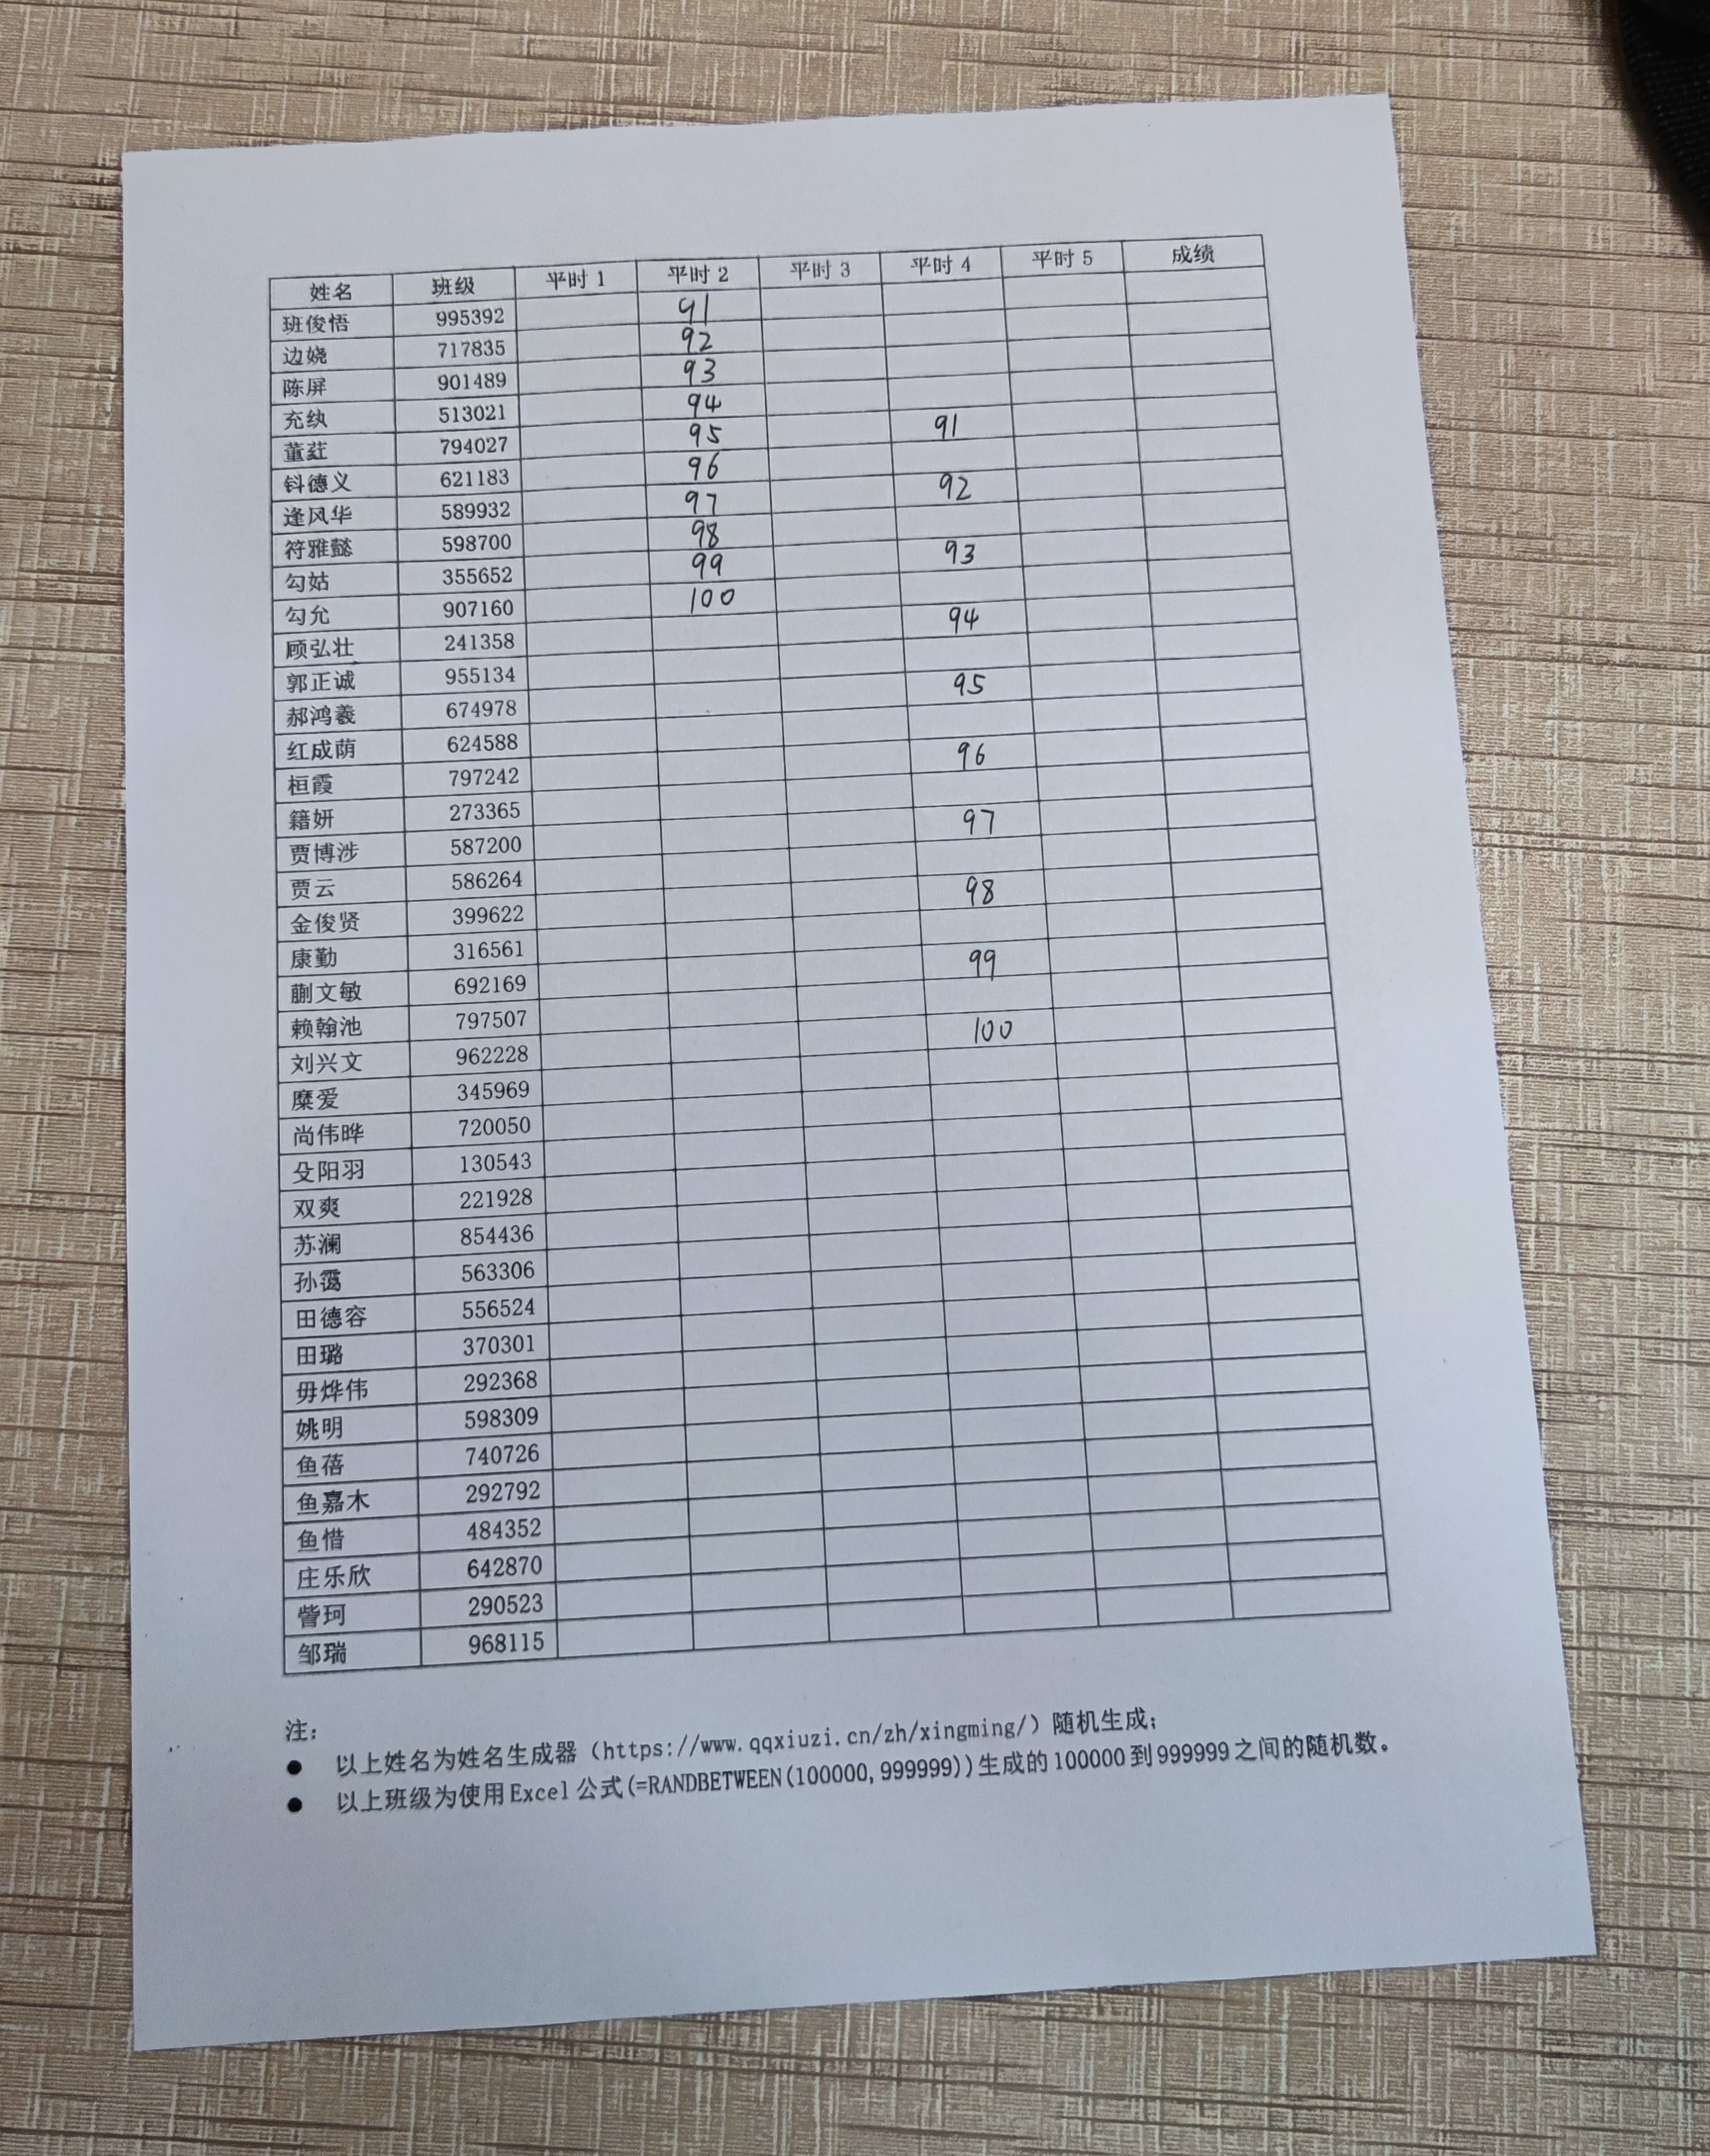 姓名 班级 平时1 平时2 平时3 平时4 平时5 成绩
班俊悟 995392 91
边娆 717835 92
陈屏 901489 93
充纨 513021 94
董荭 794027 95 91
钭德义 621183 96
逄风华 589932 97 92
符雅懿 598700 98
勾姑 355652 99 93
勾允 907160 100
顾弘壮 241358 94
郭正诚 955134
郝鸿羲 674978 95
红成荫 624588
桓霞 797242 96
籍妍 273365
贾博涉 587200 97
贾云 586264
金俊贤 399622 98
康勤 316561
蒯文敏 692169 99
赖翰池 797507
刘兴文 962228 100
糜爱 345969
尚伟晔 720050
殳阳羽 130543
双爽 221928
苏澜 854436
孙霭 563306
田德容 556524
田璐 370301
毋烨伟 292368
姚明 598309
鱼蓓 740726
鱼嘉木 292792
鱼惜 484352
庄乐欣 642870
訾珂 290523
邹瑞 968115
注：
● 以上姓名为姓名生成器（https://www.qqxiuzi.cn/zh/xingming/）随机生成；
● 以上班级为使用Excel公式(=RANDBETWEEN(100000,999999))生成的100000到999999之间的随机数。